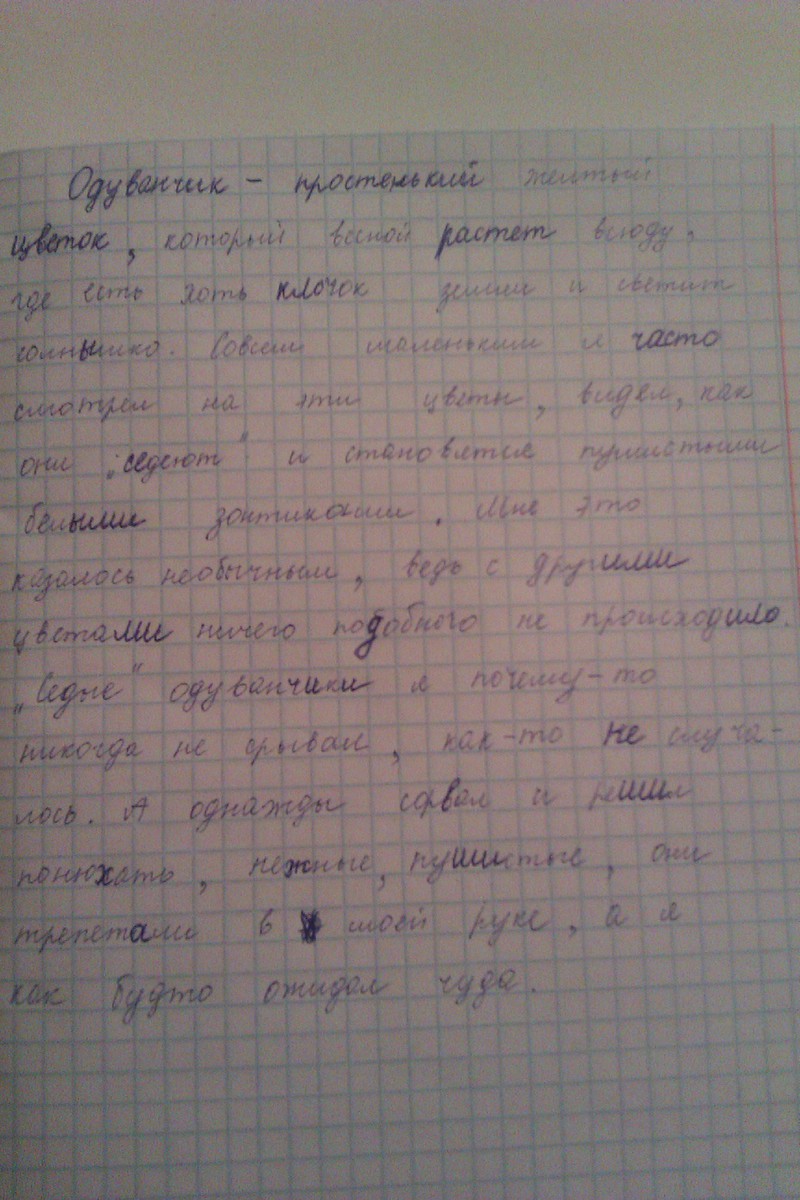 Одуванчик – простенький желтый
цветок, который весной растет всюду,
где есть хоть клочок земли и светит
солнышко. Совсем маленьким я часто
смотрел на эти цветы, видел, как
они „седеют" и становятся пушистыми
белыми зонтиками. Мне это
казалось необычным, ведь с другими
цветами ничего подобного не происходило.
„Седые" одуванчики я почему-то
никогда не срывал, как-то не случа-
лось. А однажды сорвал и решил
понюхать, нежные, пушистые, они
трепетали в моей руке, а я
как будто ожидал чуда.